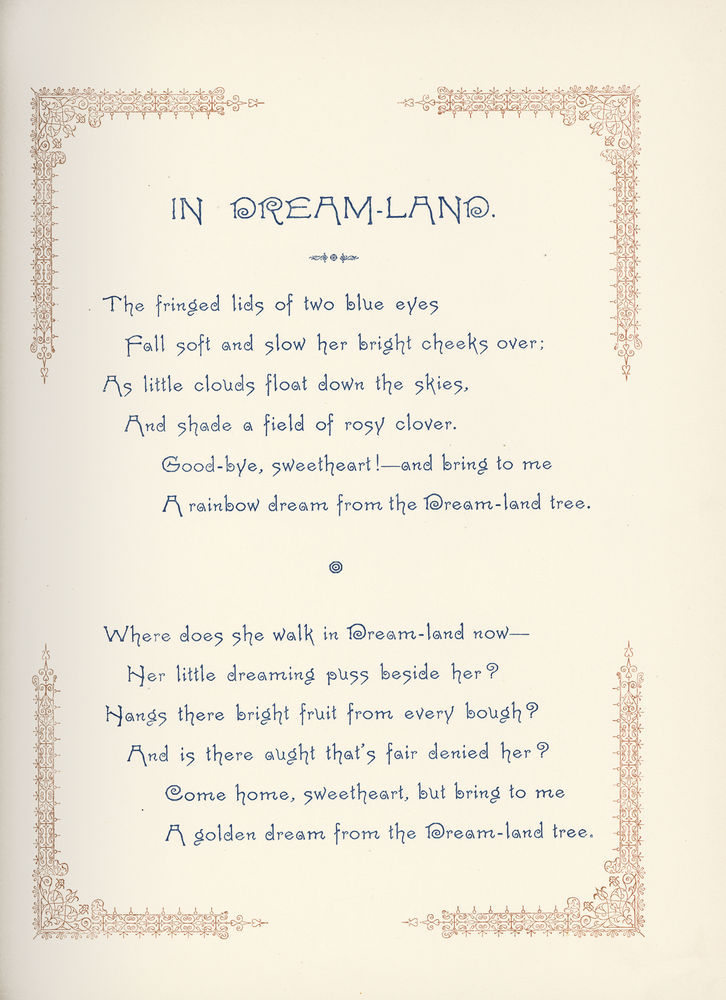 IN DREAM-LAND.
The fringed lids of two blue eyes
Fall soft and slow her bright cheeks over;
As little clouds float down the skies,
And shade a field of rosy clover.
Good-bye, sweetheart!—and bring to me
A rainbow dream from the Dream-land tree.
Where does she walk in Dream-land now—
Her little dreaming puss beside her?
Hangs there bright fruit from every bough?
And is there aught that's fair denied her?
Come home, sweetheart, but bring to me
A golden dream from the Dream-land tree.